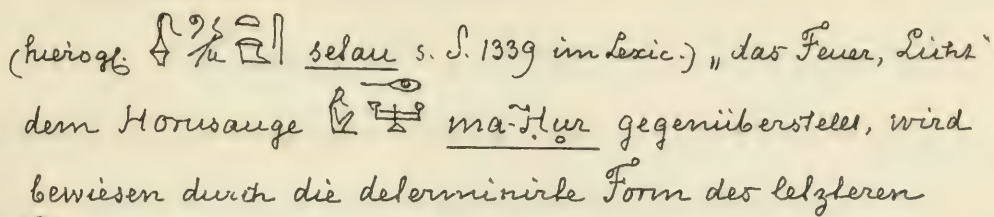 (hierogl. setau s. S. 1339 im Lexic.) „das Feuer, Licht“
dem Horusauge ma-Ḥur gegenüberstellt, wird
bewiesen durch die determinirte Form des letzteren